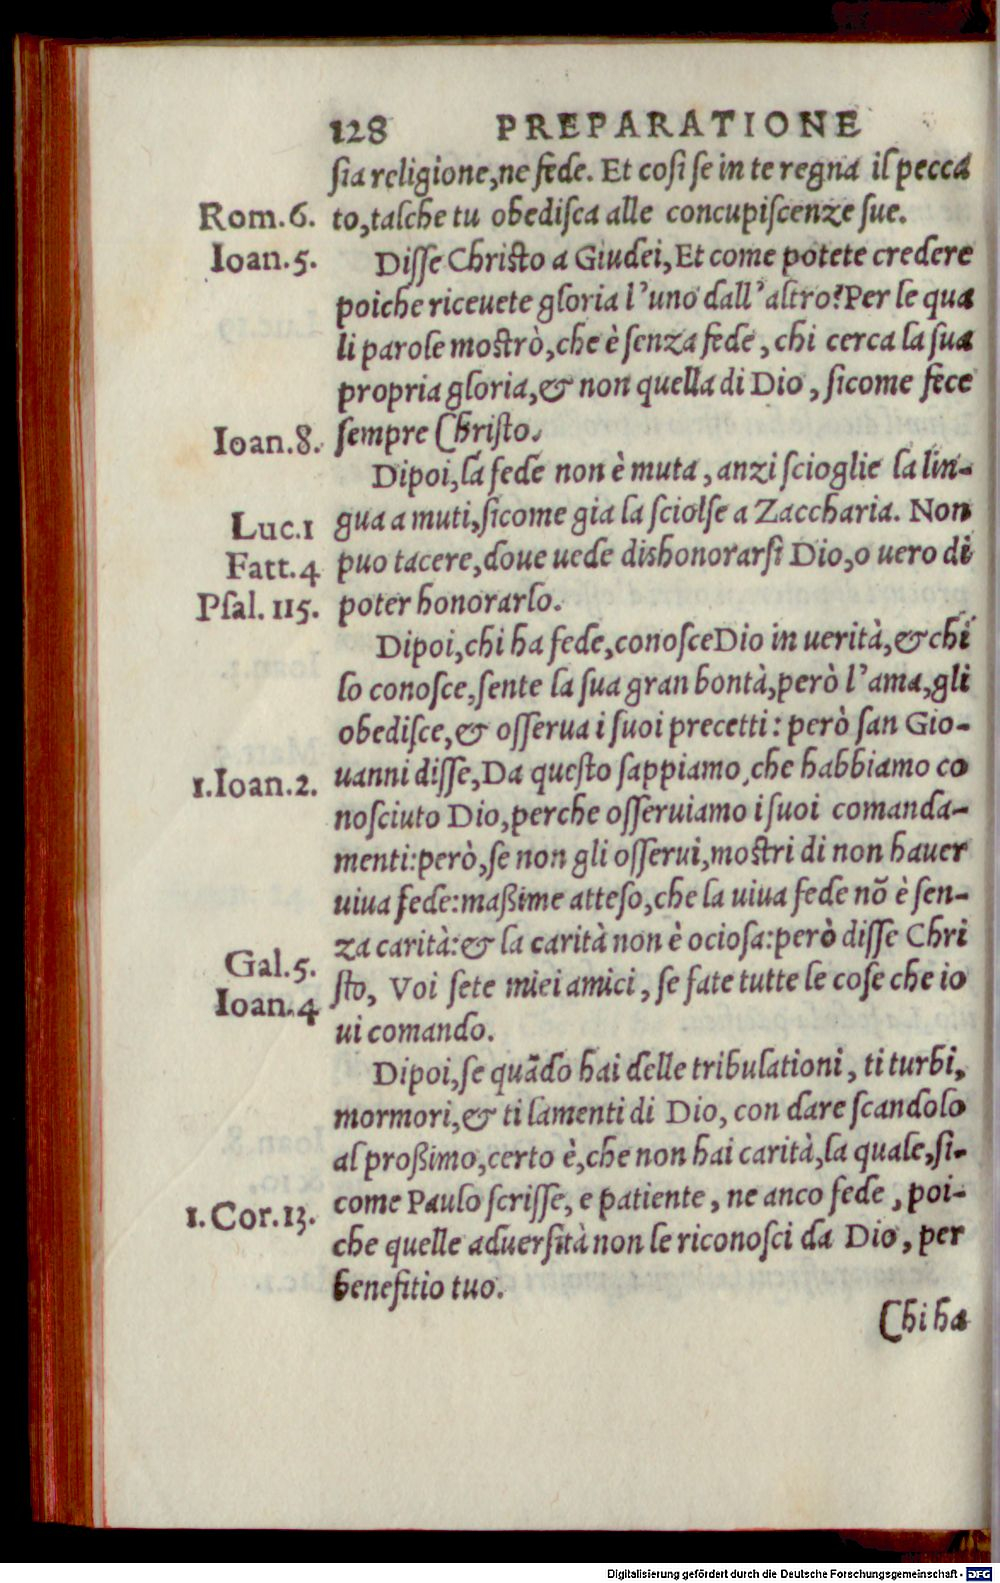 128 PREPARATIONE
ſia religione, ne fede. Et coſi ſe in te regna il pecca
Rom.6. to, talche tu obediſca alle concupiſcenze ſue.
Ioan.5. Diſſe Chriſto a Giudei, Et come potete credere
poiche riceuete gloria l'uno dall'altro? Per le qua
li parole moſtrò, che è ſenza fede, chi cerca la ſua
propria gloria, & non quella di Dio, ſicome fece
Ioan.8. ſempre Chriſto.
Dipoi, la fede non è muta, anzi ſcioglie la lin-
Luc.1 gua a muti, ſicome gia la ſciolſe a Zaccharia. Non
Fatt.4 puo tacere, doue uede dishonorarſi Dio, o uero di
Pſal. 115. poter honorarlo.
Dipoi, chi ha fede, conoſce Dio in uerità, & chi
lo conoſce, ſente la ſua gran bontà, però l'ama, gli
obediſce, & oſſerua i ſuoi precetti: però ſan Gio-
1.Ioan.2. uanni diſſe, Da queſto ſappiamo, che habbiamo co
noſciuto Dio, perche oſſeruiamo i ſuoi comanda-
menti: però, ſe non gli oſſerui, moſtri di non hauer
uiua fede: maßime atteſo, che la uiua fede nõ è ſen-
za carità: & la carità non è ocioſa: però diſſe Chri
Gal.5. ſto, Voi ſete miei amici, ſe fate tutte le coſe che io
Ioan.4 ui comando.
Dipoi, ſe quãdo hai delle tribulationi, ti turbi,
mormori, & ti lamenti di Dio, con dare ſcandolo
al proßimo, certo è, che non hai carità, la quale, ſi-
1.Cor.13. come Paulo ſcriſſe, e patiente, ne anco fede, poi-
che quelle aduerſità non le riconoſci da Dio, per
benefitio tuo.
Chi ha
Digitalisierung gefördert durch die Deutsche Forschungsgemeinschaft - DFG